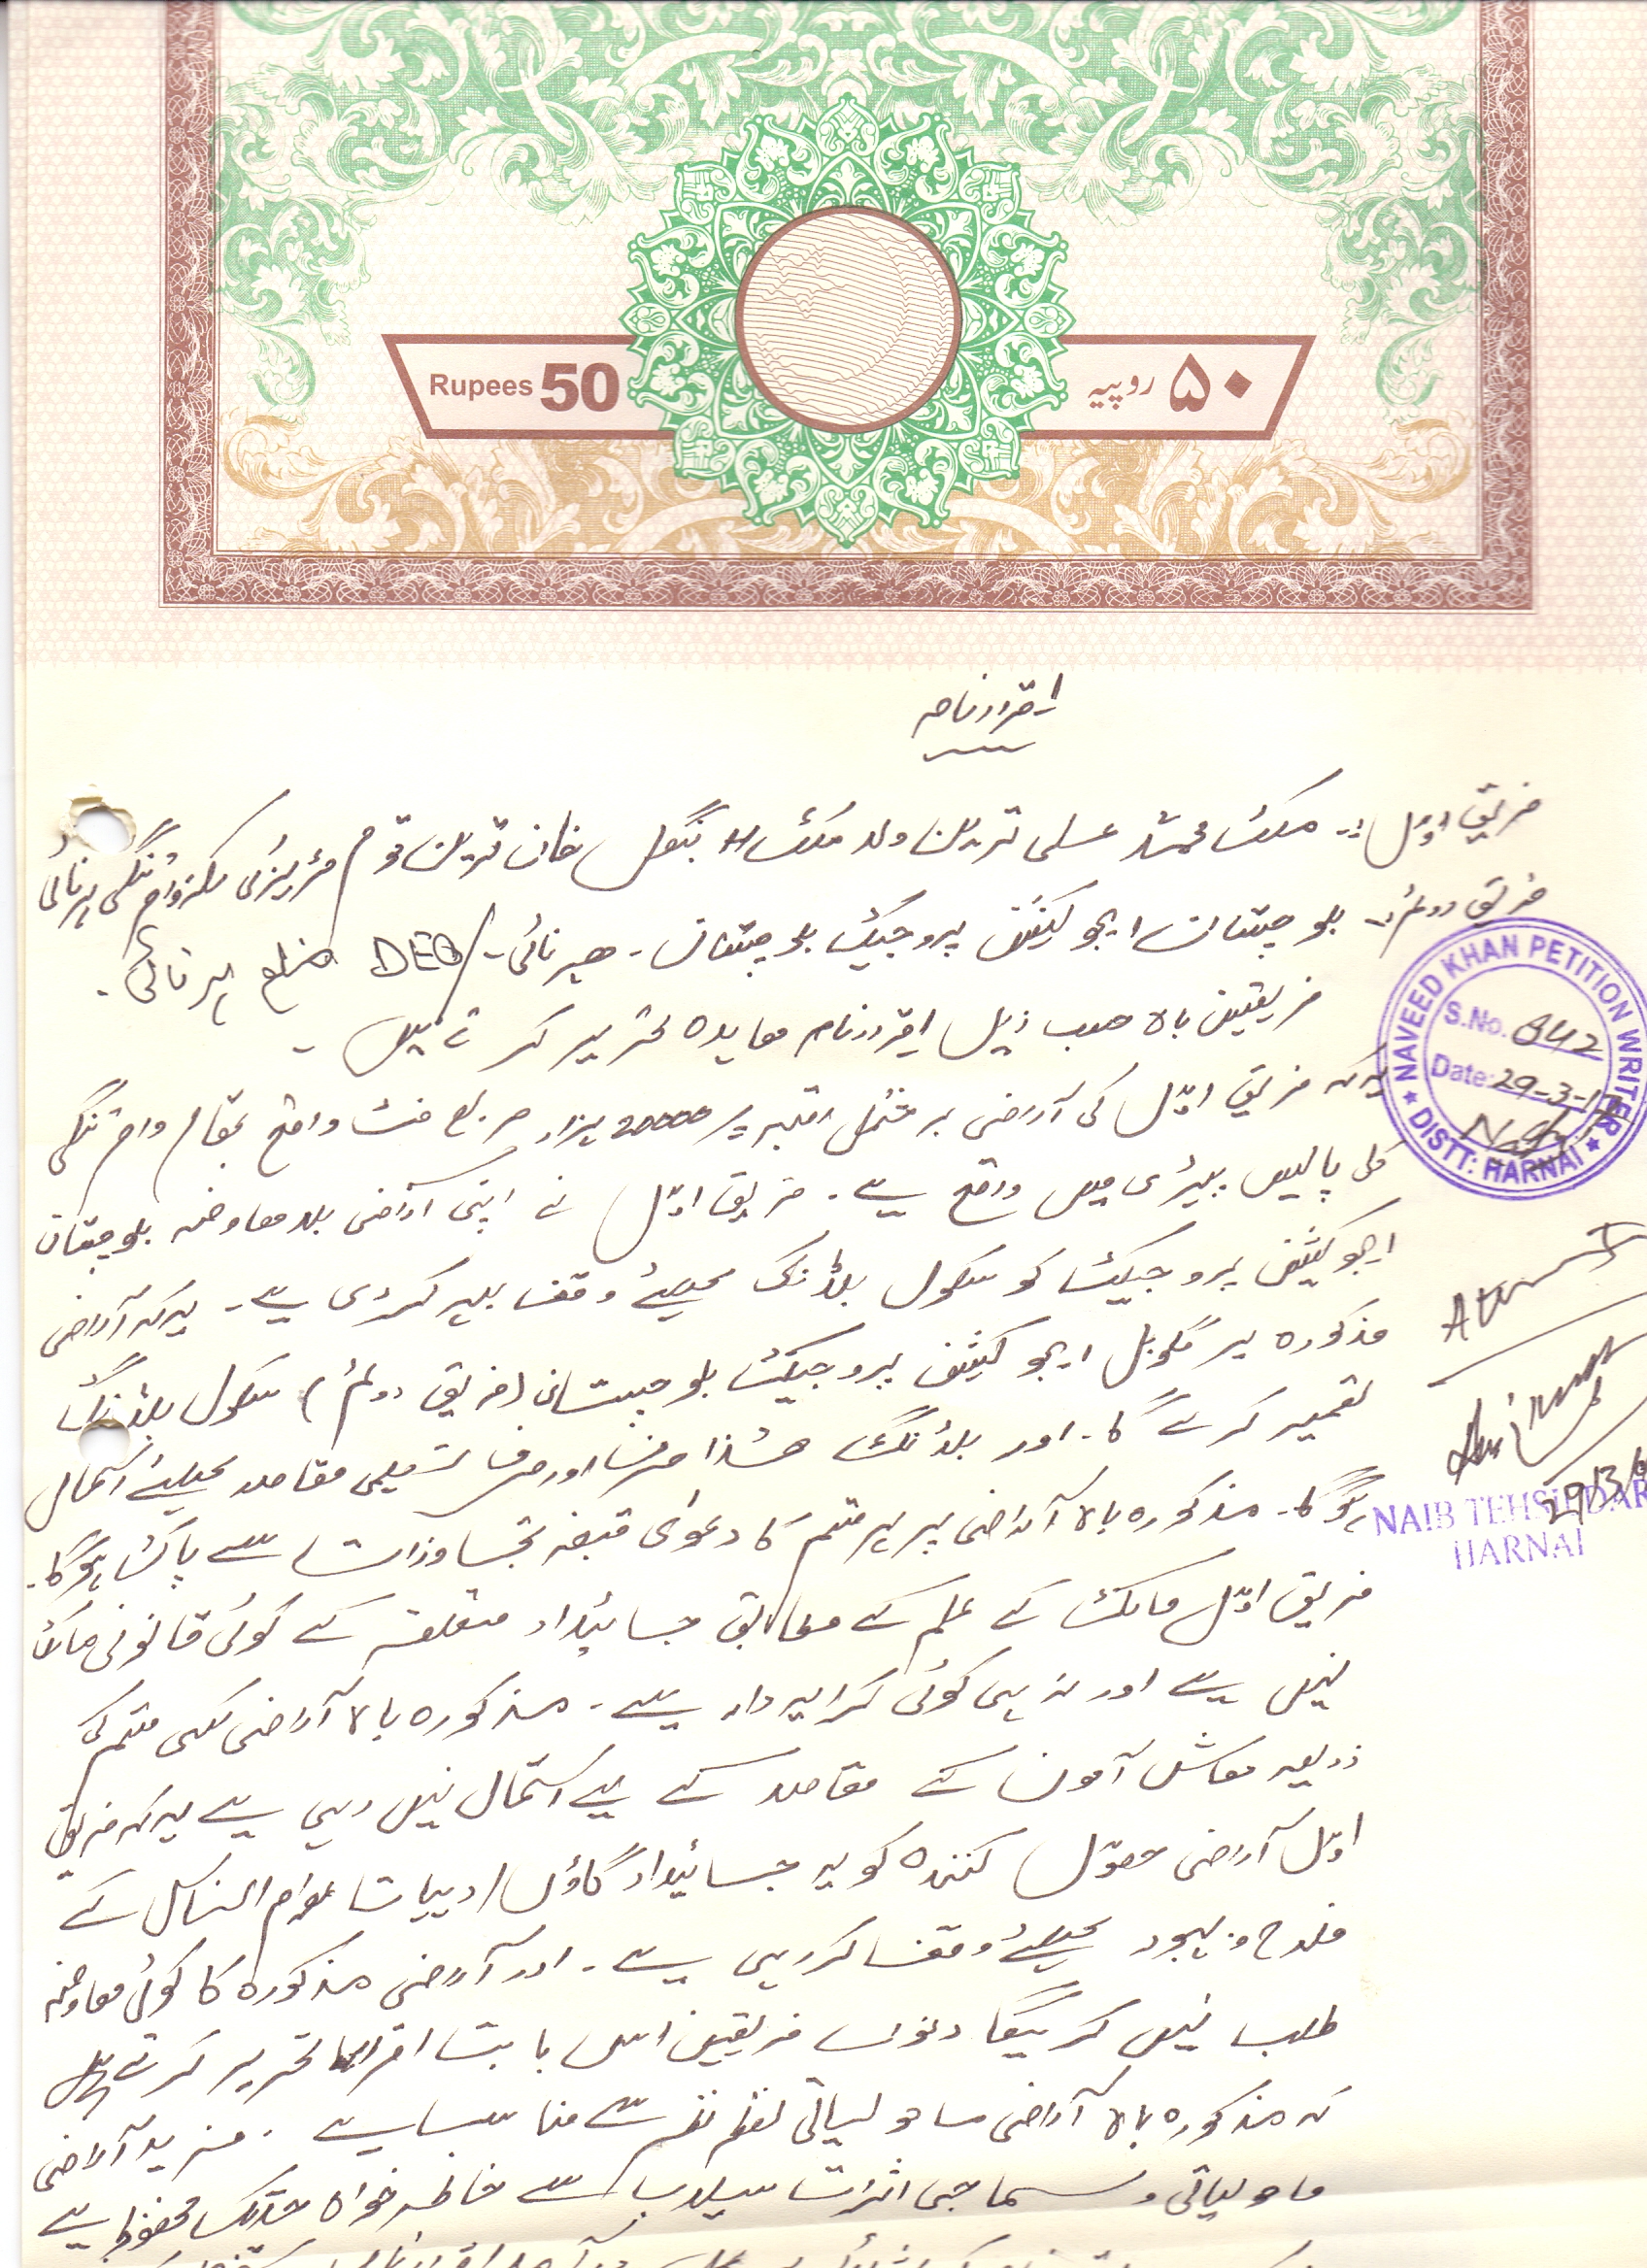 Rupees 50
۵۰ روپیہ
اقرارنامہ
فریق اوّل :۔ ملک محمد علی ترین ولد ملک بنگل خان ترین قوم ساکن وام تنگی ہرنائی
فریق دوئم :۔ بلوچستان ایجوکیشن پروجیکٹ بلوچستان ۔ ھرنائی ۔ / DEO ضلع ہرنائی ۔
فریقین بالا حسب ذیل اقرارنامہ معاہدہ تحریر کرتے ہیں ۔
یہ کہ فریق اوّل کی آراضی بر مشتمل رقبہ پر 20000 ہزار مربع فٹ واقع بمقام وام تنگی
کلی میں واقع ہے ۔ فریق اوّل نے اپنی آراضی بلامعاوضہ بلوچستان
ایجوکیشن پروجیکٹ کو سکول بلڈنگ کیلئے وقف کردی ہے ۔ یہ کہ آراضی
مذکورہ پر گلوبل ایجوکیشن پروجیکٹ بلوچستان (فریق دوئم) سکول بلڈنگ
تعمیر کرے گا ۔ اور بلڈنگ ھذا صرف اور صرف تعلیمی مقاصد کیلئے استمال
ہوگا ۔ مذکورہ بالا آراضی ہر قسم کا دعوٰی قبضہ تجاوزات سے پاک ہوگا ۔
فریق اوّل مالک کے علم کے مطابق جائیداد متعلقہ کے کوئی قانونی مالک
نہیں ہے اور نہ ہی کوئی کرایہ دار ہے ۔ مذکورہ بالا آراضی کسی قسم کی
ذریعہ معاش آمدن کے مقاصد کے لیے استمال نہیں رہی ہے یہ کہ فریق
اوّل آراضی کنندہ کو یہ جائیداد گاؤں / دیہات عوام الناس کے
فلاح و بہبود کیلئے وقف کررہی ہے ۔ اور آراضی مذکورہ کا کوئی معاوضہ
طلب نہیں کریگا دونوں فریقین اس بابت اقرار تحریر کرتے ہیں
کہ مذکورہ بالا آراضی ماحولیاتی نقطہ نظر سے مناسب ہے ۔ مزید آراضی
ماحولیاتی و سماجی اثرات سیلاب سے خاطر خواہ حد تک محفوظ ہے
NAVEED KHAN PETITION WRITER
DISTT: HARNAI
S.No. 842
Date: 29-3-1
29/3/
NAIB TEHSILDAR
HARNAI